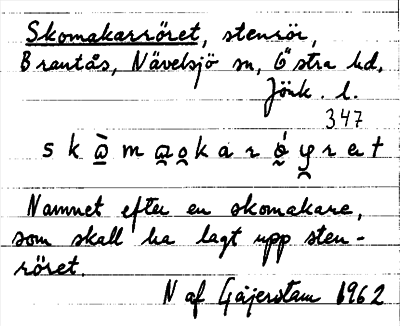 Skomakarröret, stenrör,
Brantås, Nävelsjö sn, Östra hd,
Jönk. l.
347
skὼ̠mωo̠karó̠yret
Namnet efter en skomakare,
som skall ha lagt upp sten-
röret.
N af Gäijerstam 1962